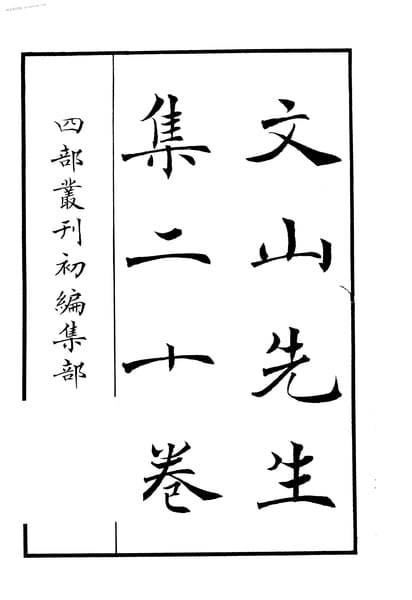 文山先生
集二十卷
四部叢刊初編集部